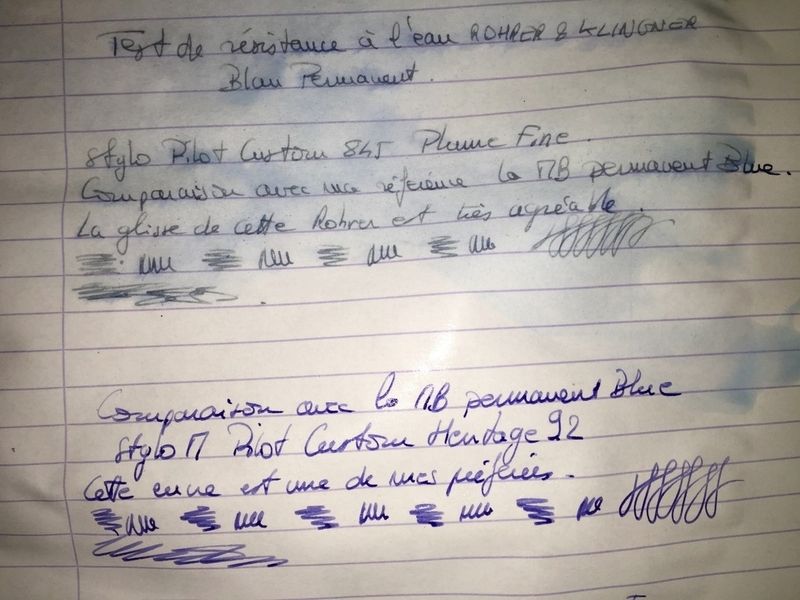 Test de résistance à l'eau ROHRER & KLINGNER
Blau Permanent.
Stylo Pilot Custom 845 Plume Fine.
Comparaison avec ma référence la MB permanent Blue.
La glisse de cette Rohrer est très agréable.
Comparaison avec la MB permanent Blue
Stylo Pilot Custom Heritage 92
Cette encre est une de mes préférées.